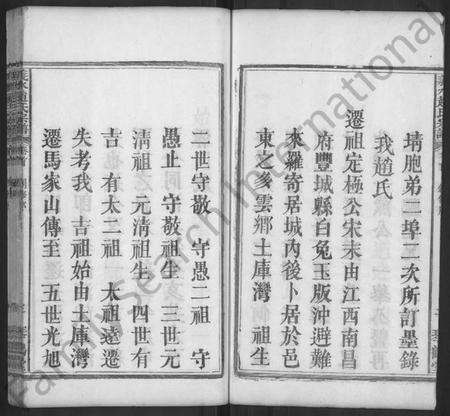 靖胞弟二埠二次所訂墨錄
我趙氏
遷祖定極公宋末由江西南昌
府豐城縣白兔玉版沖避難
來羅寄居城內後卜居於邑
東之多雲鄉土庫灣 何祖生
二世守敬 守愚二祖 守
愚止 守敬祖生 三世元
清祖 元清祖生 四世有
吉 有太二祖 太祖遠遷
失考我 吉祖始由土庫灣
遷馬家山傳至 五世光旭
FamilySearch International